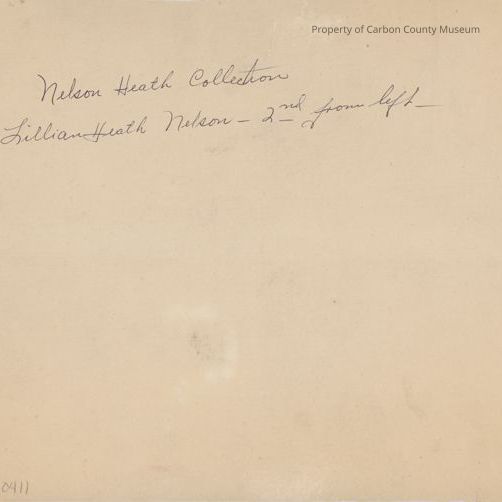 Property of Carbon County Museum
Nelson Heath Collection
Lillian Heath Nelson - 2nd from left -
0411